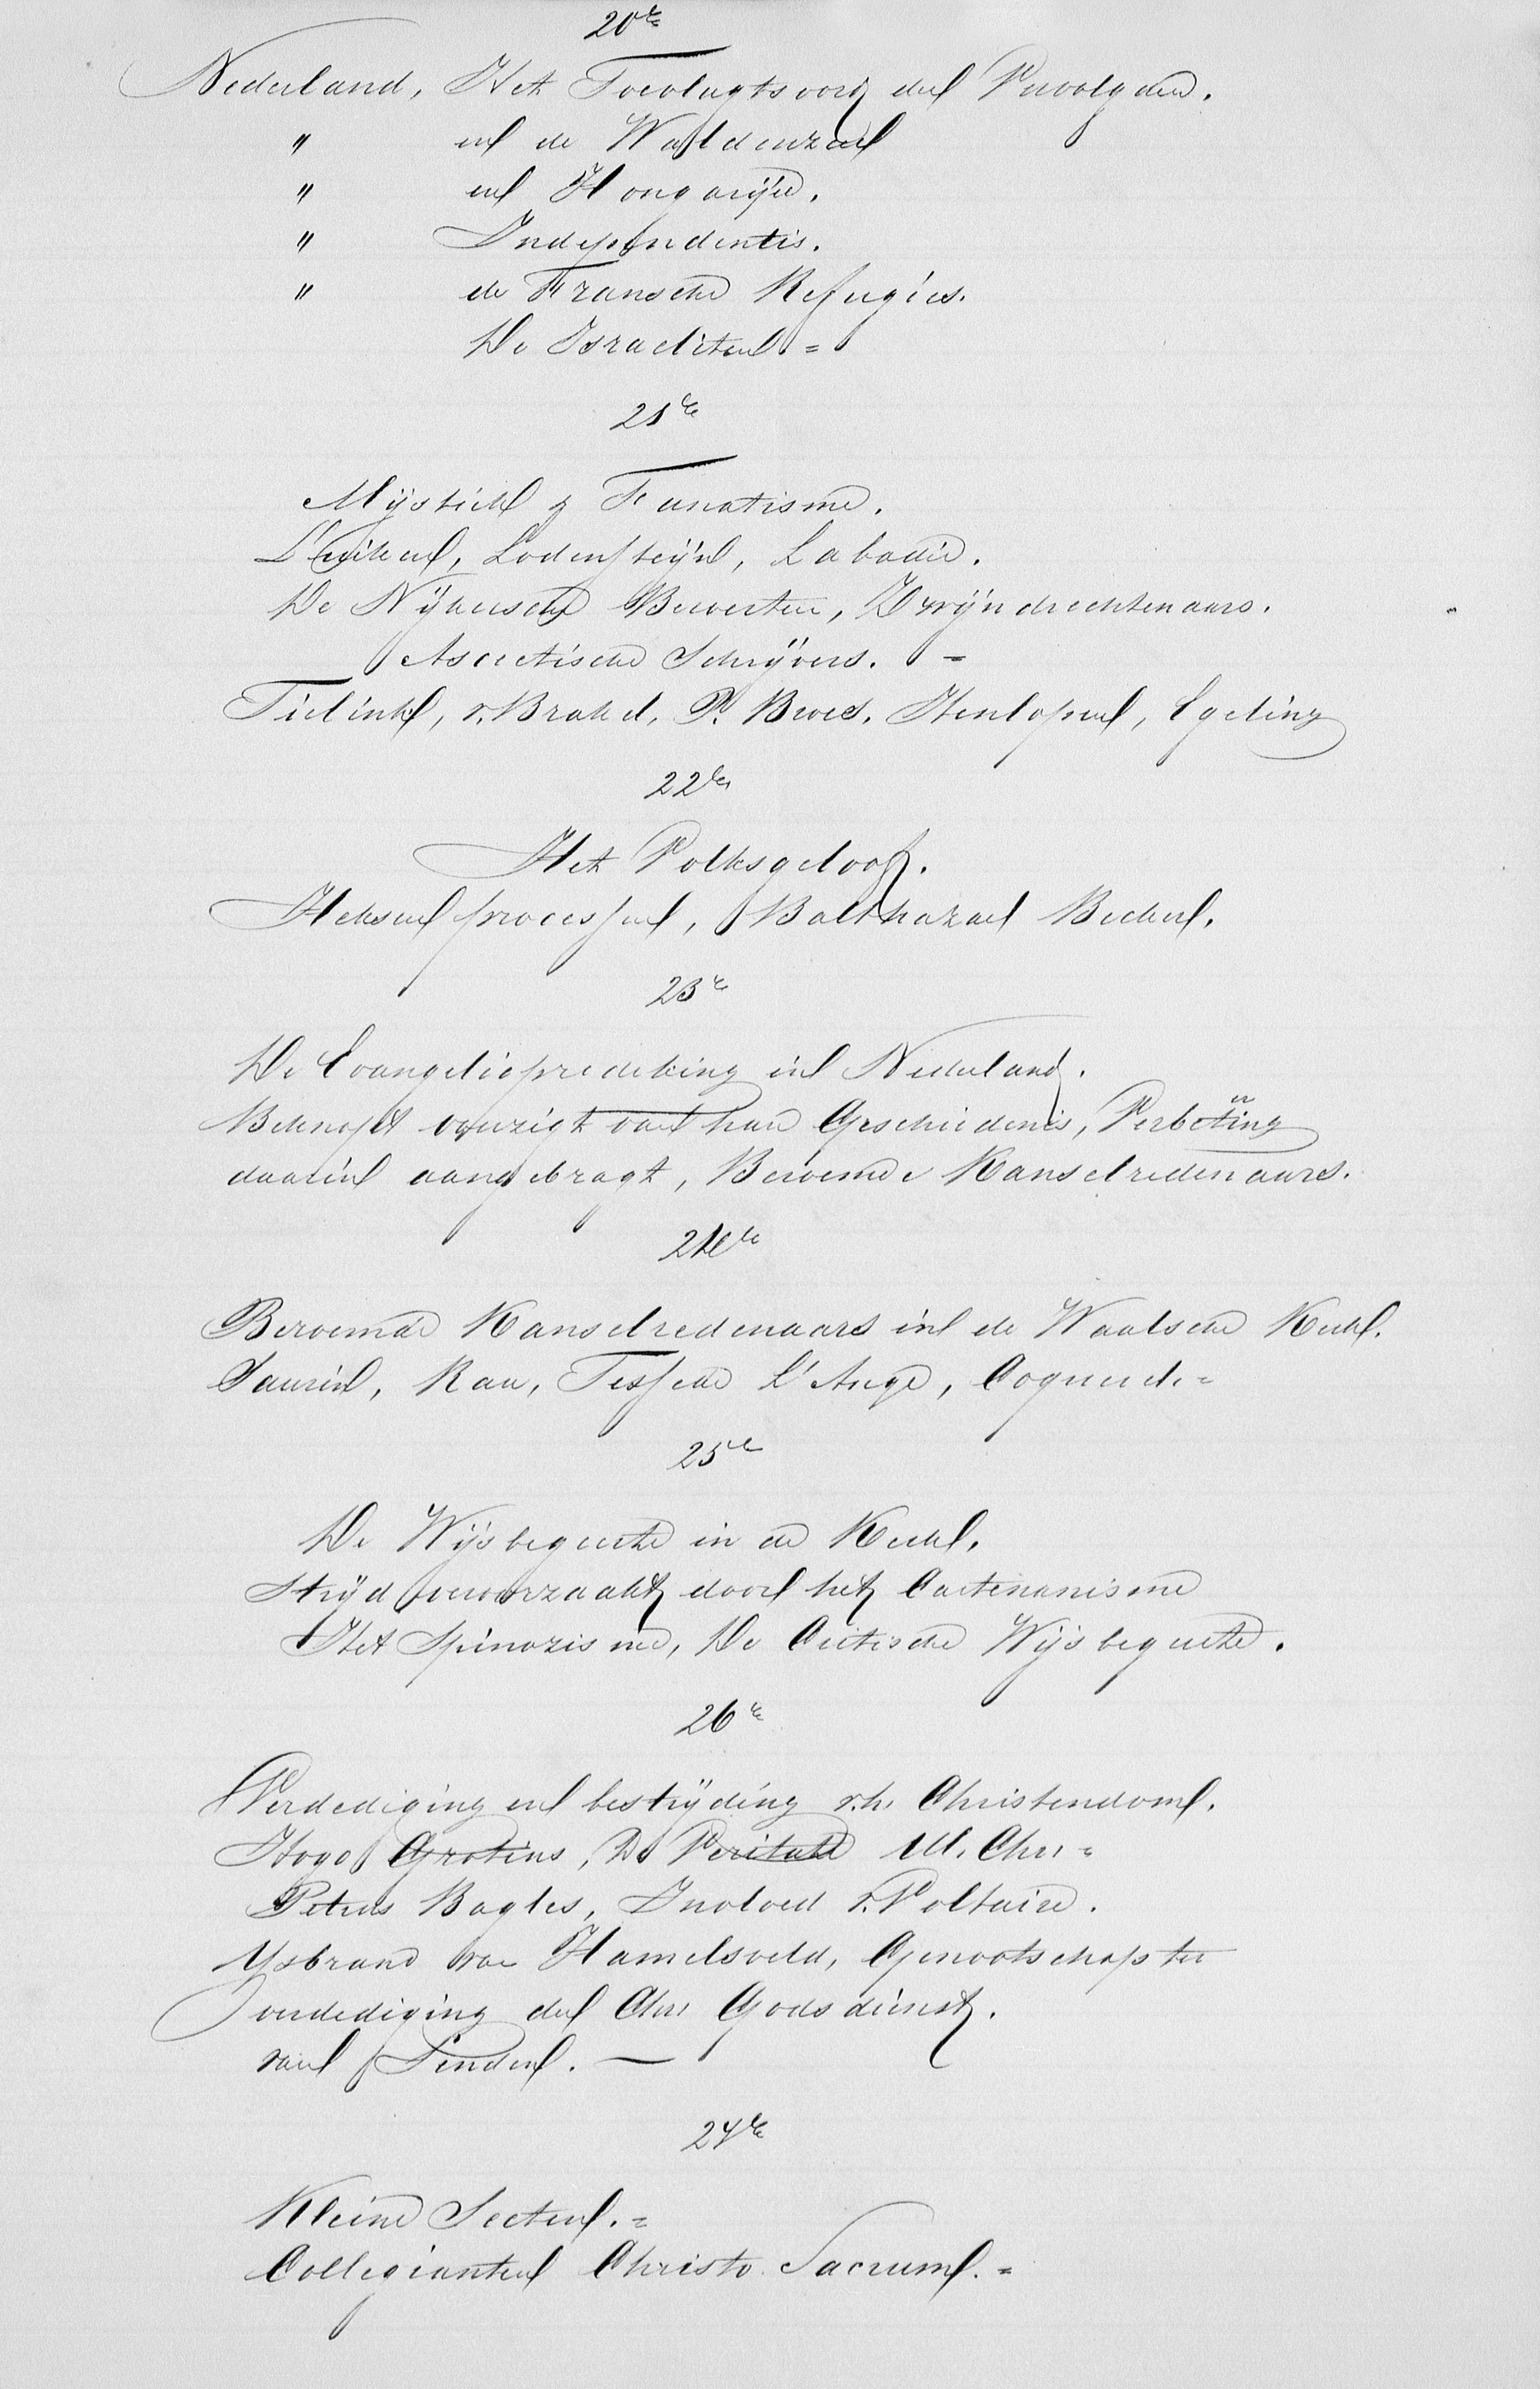 20ste
Nederland, Het Toevlugtsoord der Vervolgden.
" en de Waldenzen
" en Hongarije.
" Independentis.
" de Fransche Refugiés.
De Israeliten =
21ste
Mystiek & Fanatisme.
Luiken, Lodensteijn, Labadie.
De Nijkersche Beroerten, Zwijndrechtenaars.
Ascetische Schrijvers. =
Tielink, v. Brakel, P. Broes, Henlopen, Egeling
22ste
Het Volksgeloof.
Heksenprocessen, Balthazar Becker.
23e
De Evangelieprediking in Nederland.
Beknopt overzigt van hare Geschiedenis, Verbetering
daarin aangebragt, Beroemde Kanselredenaars.
24ste
Beroemde Kanselredenaars in de Waalsche Kerk.
Saurin, Rau, Tesseder L'Ange, Coquerel. =
25ste
De Wijsbegeerte in de Kerk.
Strijd veroorzaakt door het Cartesianisme
Het Spinozisme, De Critische Wijsbegeerte.
26ste
Verdediging en bestrijding v.h. Christendom.
Hogo Grotius, De Veritate M. Chr. =
Petrus Bagles, Invloed v. Voltaire.
Ysbrand van Hamelsveld, Genootschap ter
verdediging der Chr. Godsdienst.
van Senden. —
27ste
Kleine Secten. =
Collegianten Christo Sacrum. =